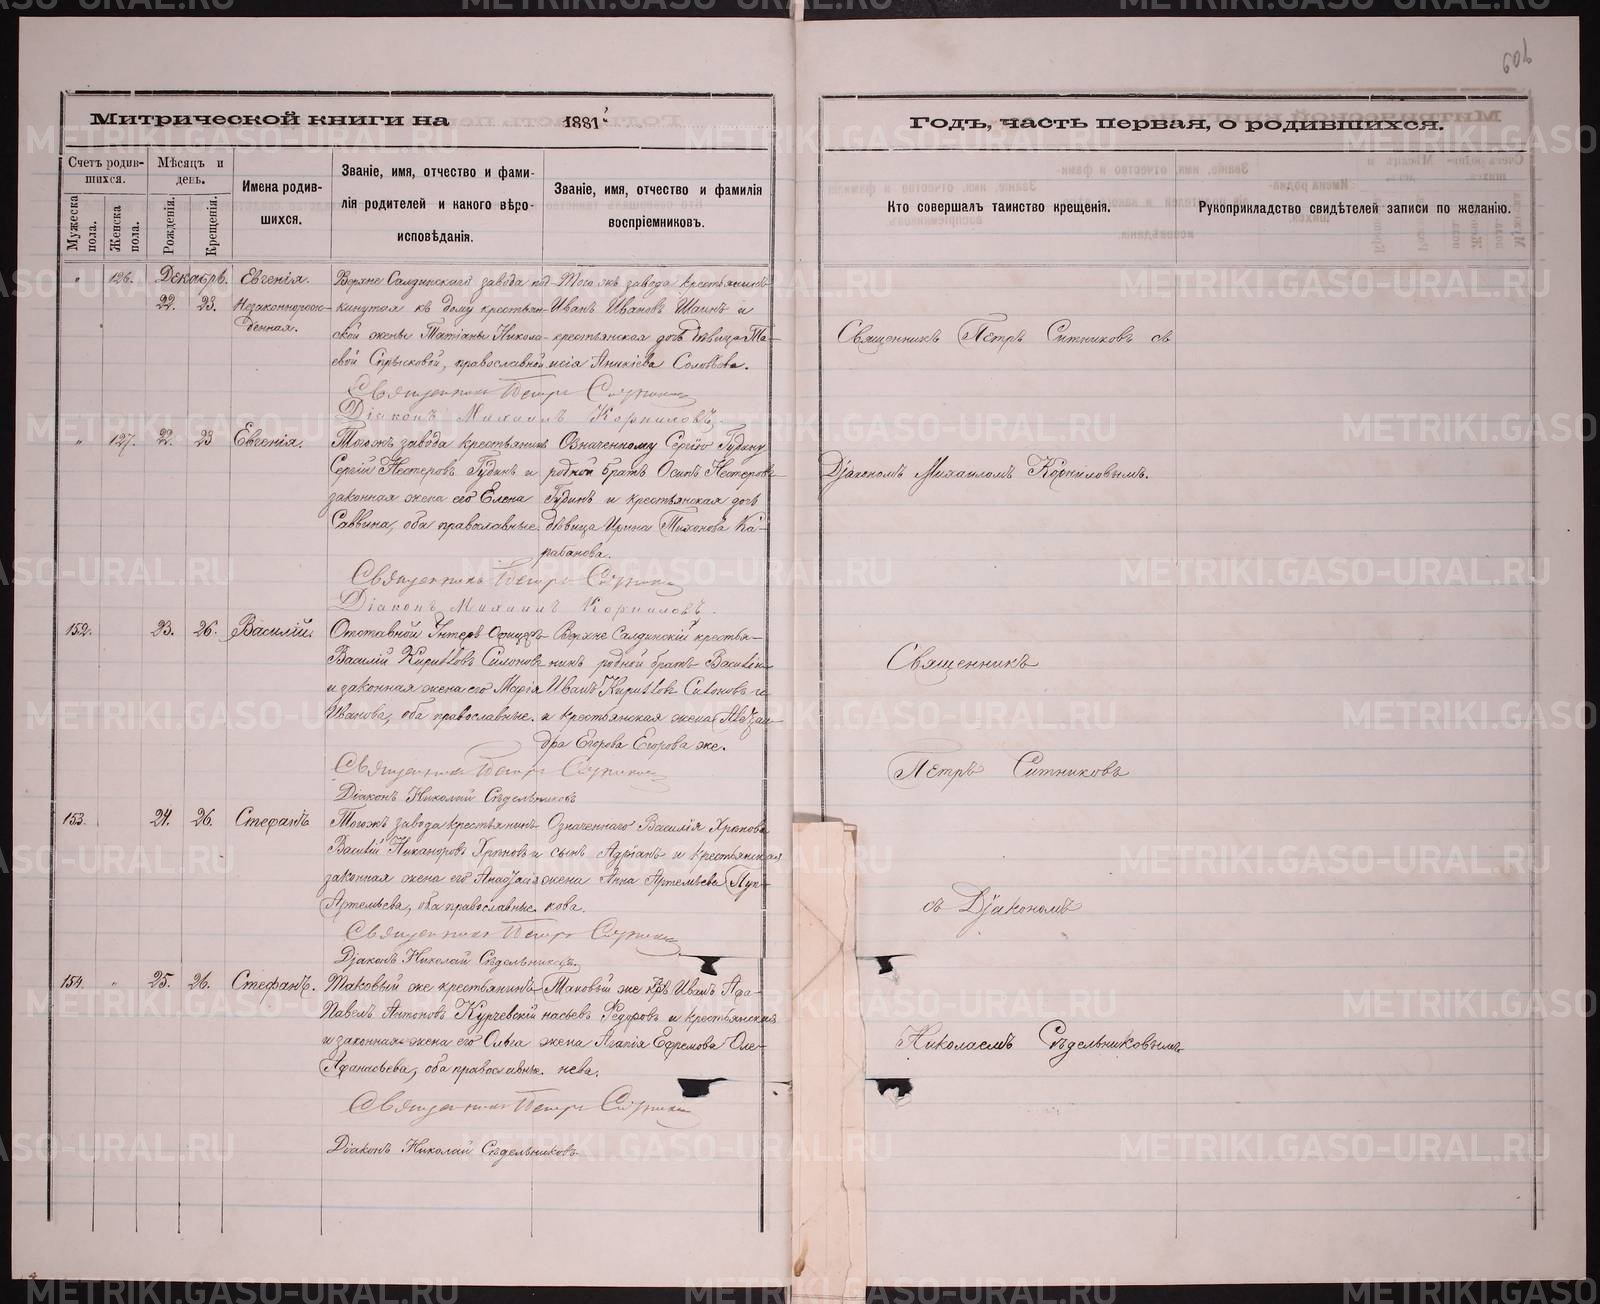 Митрической книги на 1881
Годъ, часть первая, о родившихся.
Счетъ родившихся.
Мужеска пола.
Женска пола.
Мѣсяцъ и день.
Рожденія.
Крещенія.
Имена родившихся.
Званіе, имя, отчество и фамилія родителей и какого вѣроисповѣданія.
Званіе, имя, отчество и фамилія воспріемниковъ.
Кто совершалъ таинство крещенія.
Рукоприкладство свидѣтелей записи по желанію.
126. Декабрь. 22. 23. Евгенія. Незаконнорожденная.
Верхне Салдинскаго завода под-
кинутая къ дому крестьян-
ской жены Татіаны Никола-
евой, православной
Того же завода крестьянинъ
Иванъ Ивановъ и
крестьянская дочь дѣвица Та-
исія Аникіева Соловьова.
Священникъ Петръ Ситниковъ
Діаконъ Михаилъ Корниловъ.
Священникъ Петръ Ситниковъ съ
127. 22. 23 Евгенія.
Тогожъ завода крестьянинъ
Сергій Нестеровъ Гудинъ и
законная жена его Елена
Саввина, оба православные.
Означенному Сергію Гудину
родной братъ Осипъ Нестеровъ
Гудинъ и крестьянская дочь
дѣвица Ирина Тихонова Ка-
рабанова.
Священникъ Петръ Ситниковъ
Діаконъ Михаилъ Корниловъ.
Діакономъ Михаиломъ Корниловымъ.
152. 23. 26. Василій.
Отставной Унтеръ Офицеръ
Василій Кирилловъ
и законная жена его Марія
Иванова, оба православные.
Верхне Салдинскій крестья-
нинъ родной братъ Василія
Иванъ Кирилловъ
и крестьянская жена
Егорова Егорова же.
Священникъ Петръ Ситниковъ
Діаконъ Николай Сѣдельниковъ
Священникъ
Петръ Ситниковъ
153. 24. 26. Стефанъ
Тогожъ завода крестьянинъ
Василій Никаноровъ Хрѣновъ и
законная жена его Анастасія
Артемьева, оба православные.
Означеннаго Василія Хрѣнова
сынъ Адріанъ и крестьянская
жена Анна Артемьева
кова.
Священникъ Петръ Ситниковъ
Діаконъ Николай Сѣдельниковъ.
съ Діакономъ
154. 25. 26. Стефанъ.
Таковый же крестьянинъ
Павелъ Антоновъ
и законная жена его Ольга
Афанасьева, оба православные.
Таковый же Иванъ Афа-
насьевъ Ѳедоровъ и крестьянская
жена Агапія Ефремова Оле-
нева.
Священникъ Петръ Ситниковъ
Діаконъ Николай Сѣдельниковъ
Николаемъ Сѣдельниковымъ
METRIKI.GASO-URAL.RU